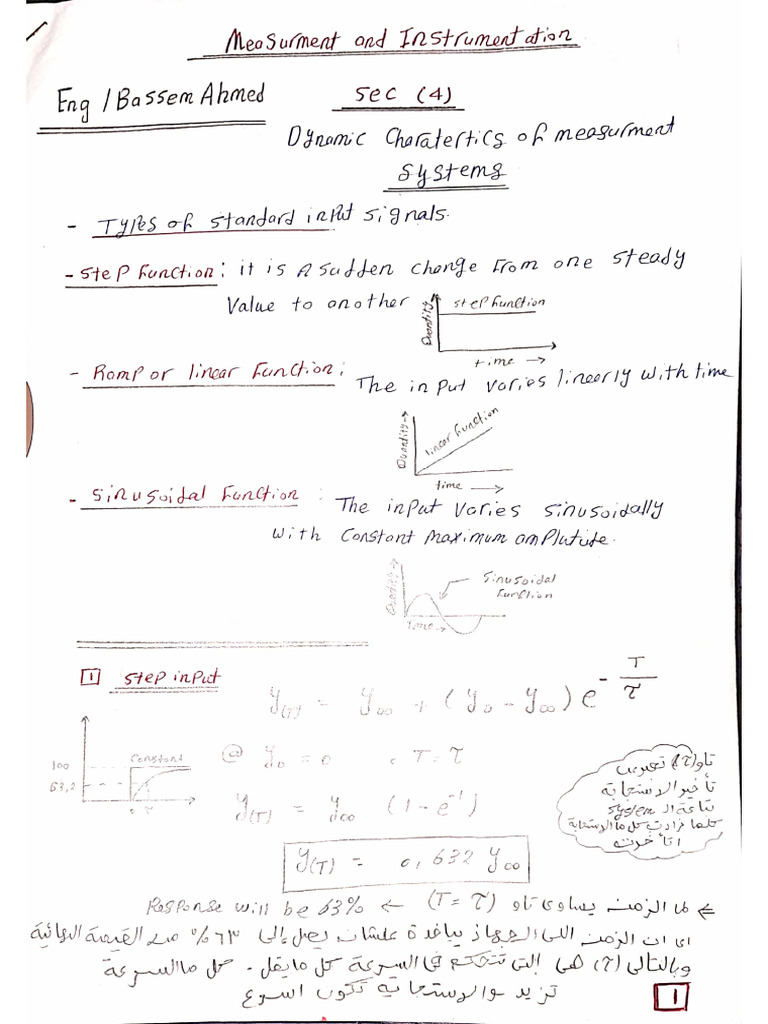 Measurment and Instrumentation
Eng / Bassem Ahmed
Sec (4)
Dynamic Charatertics of measurment
Systems
- Types of standard input signals.
- Step function : it is A sudden change from one steady
Value to another
step function
Quantity
time
- Ramp or linear function :
The input varies linearly with time
Quantity
linear function
time
- Sinusoidal Function :
The input varies sinusoidally
with constant maximum amplutute.
Quantity
Sinusoidal
function
Time
1 Step input
y(T) = y∞ + (y0 - y∞) e^-T/τ
100
Constant
63,2
0 τ
@ y0 = 0 , T = τ
y(T) = y∞ (1 - e^-1)
y(T) = 0,632 y∞
تاو (τ) تعبر عن
تأخير الاستجابة
بتاعة ال system
كلما زادت كل ما الاستجابة
اتأخرت
⇐ لما الزمن يساوى تاو (T = τ) ← Response will be 63%
اى ان الزمن اللى الجهاز بياخدة علشان يصل إلى ٦٣% من القيمة النهائية
وبالتالى (τ) هى التى تتحكم فى السرعة كل ما يقل - كل ما السرعة
تزيد والاستجابة تكون اسرع
1